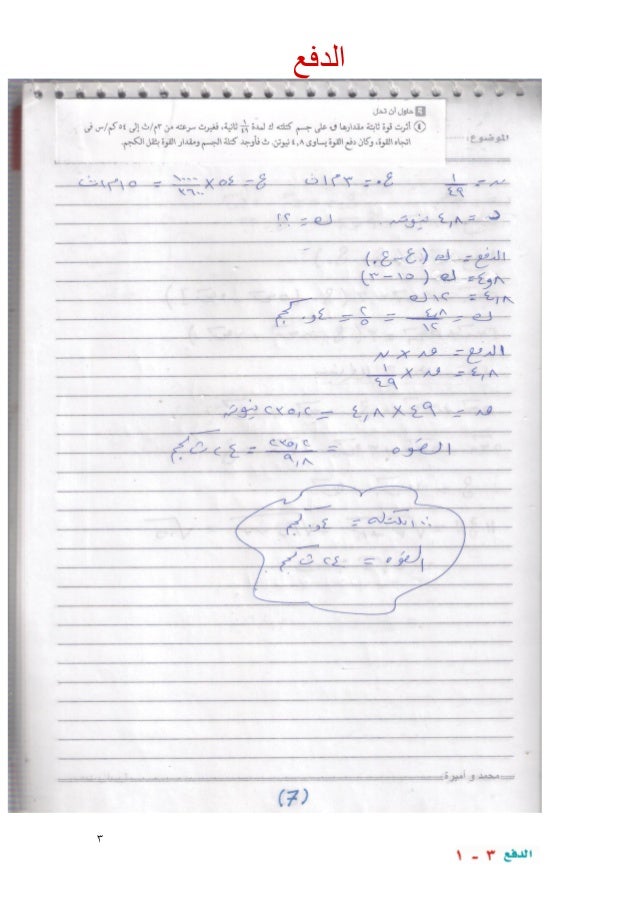 الدفع
حاول أن تحل
الموضوع:
٤ أثرت قوة ثابتة مقدارها ق على جسم كتلته ك لمدة ١/٤٩ ثانية، فغيرت سرعته من ٣م/ث إلى ٥٤ كم/س فى
اتجاه القوة، وكان دفع القوة يساوى ٤,٨ نيوتن. ث فأوجد كتلة الجسم ومقدار القوة بثقل الكجم.
ن = ١/٤٩ ع٠ = ٣ م/ث ع = ٥٤ × ١٠٠٠/٣٦٠٠ = ١٥ م/ث
د = ٤,٨ نيوتن. ك = ؟؟
الدفع = ك (ع - ع٠)
٤,٨ = ك (١٥ - ٣)
٤,٨ = ١٢ ك
ك = ٤,٨/١٢ = ٢/٥ = ٤و. كجم
الدفع = ق × ن
٤,٨ = ق × ١/٤٩
ق = ٤٩ × ٤,٨ = ٢٣٥,٢ نيوتن
القوه = ٢٣٥,٢/٩,٨ = ٢٤ ث كجم
∴ الكتله = ٤و. كجم
القوه = ٢٤ ث كجم
محمد و أميرة
(7)
٣
الدفع ٣ - ١